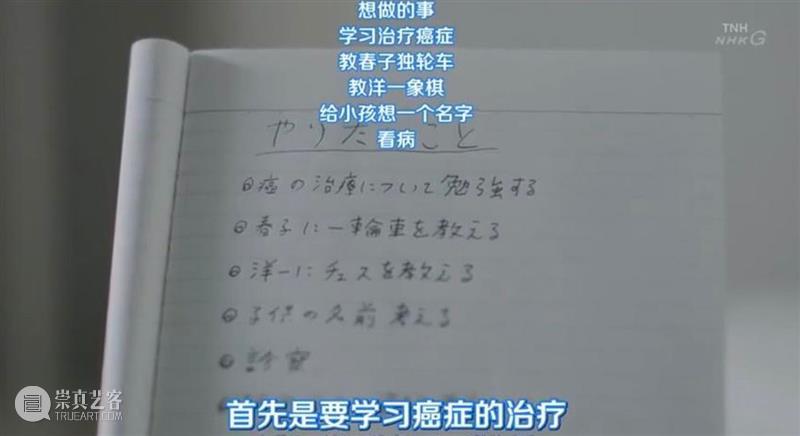 想做的事
学习治疗癌症
教春子独轮车
教洋一象棋
给小孩想一个名字
看病
TNH
NHK G
やりたいこと
癌の治療について勉強する
春子に一輪車を教える
洋一にチェスを教える
子供の名前考える
診察
首先是要学习癌症的治疗
崇真艺客
TRUEART.COM